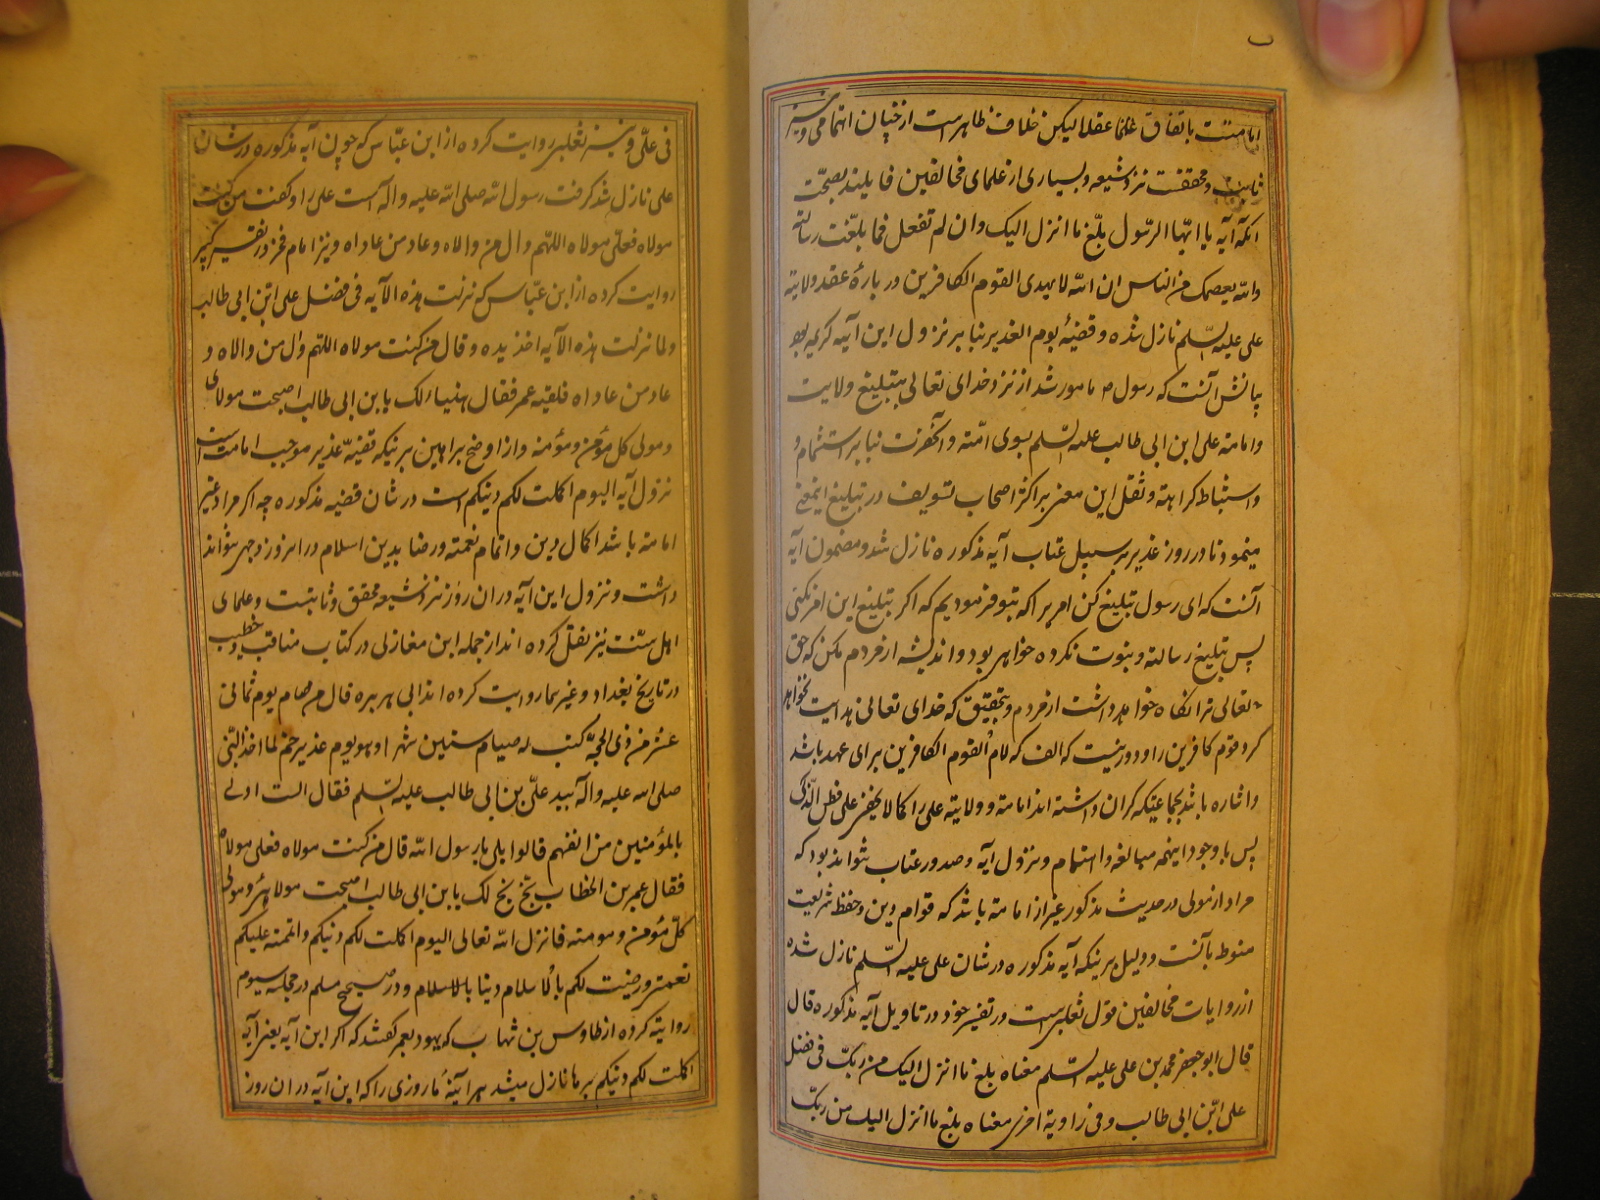 امامتست باتفاق علما عقلا لیکن خلاف ظاهر است از چنان اهتمامی و نیز
ثابت و محققست نزد شیعه و بسیاری از علمای مخالفین قایلند بصحت
آنکه آیه یا ایها الرسول بلغ ما انزل الیک وان لم تفعل فما بلغت رسالته
والله یعصمک من الناس ان الله لا یهدی القوم الکافرین در بارهٔ عقد ولایته
علی علیه السلم نازل شده و قضیهٔ یوم الغدیر بنا بر نزول این آیه کریمه بود
بیانش آنست که رسول ص مامور شد از نزد خدای تعالی بتبلیغ ولایت
وامامته علی ابن ابی طالب علیه السلم بسوی امته و آنحضرت بنا بر استشمام و
واستنباط کراهته و ثقل این معنی بر اکثر اصحاب تسویف در تبلیغ اینمعنی
مینمود تا در روز غدیر بر سبیل عتاب آیه مذکوره نازل شد و مضمون آیه
آنست که ای رسول تبلیغ کن امریرا که بتو فرمودیم که اکر تبلیغ این امر نکنی
پس تبلیغ رسالته و نبوت نکرده خواهی بود و اندیشه از مردم مکن که حق
تعالی ترا نکاه خواهد داشت از مردم و بتحقیق که خدای تعالی هدایت نخواهد
کرد قوم کافرین را و دور نیست که الف که لام القوم الکافرین برای عهد باشد
واشاره باشد بجماعتیکه کران داشته اند امامته و ولایته علی را کما لا یخفی علی فطن الذکی
پس با وجود اینهمه مبالغه و اهتمام و نزول آیه و صدور عتاب نتواند بود که
مراد از مولی در حدیث مذکور غیر از امامة باشد که قوام دین و حفظ شریعت
منوط بآنست و دلیل بر اینکه آیه مذکوره در شان علی علیه السلم نازل شده
از روایات مخالفین قول ثعلبی است در تفسیر خود در تاویل آیه مذکوره قال
قال ابو جعفر محمد بن علی علیه السلم معناه بلغ ما انزل الیک من ربک فی فضل
علی ابن ابی طالب و فی روایة اخری معناه بلغ ما انزل الیک من ربک
فی علی و نیز ثعلبی روایت کرده از ابن عباس که چون آیه مذکوره در شان
علی نازل شد کرفت رسول الله صلی الله علیه واله دست علی را و کفت من کنت
مولاه فعلی مولاه اللهم وال من والاه وعاد من عاداه و نیز امام فخر در تفسیر کبیر
روایت کرده از ابن عباس که نزلت هذه الآیه فی فضل علی ابن ابی طالب
ولما نزلت هذه الآیه اخذ یده و قال من کنت مولاه اللهم وال من والاه و
عاد من عاداه فلقیه عمر فقال هنیاء لک یا بن ابی طالب اصبحت مولای
و مولی کل مؤمن و مؤمنه و از اوضح براهین بر نیکه قضیّه غدیر موجب امامت است
نزول آیه الیوم اکملت لکم دینکم است در شان قضیه مذکوره چه اکر مراد غیر
امامته باشد اکمال دین و اتمام نعمته و رضا بدین اسلام در امروز وجهی نتواند
داشت و نزول این آیه در ان روز نزد شیعه محقق و ثابتست و علمای
اهل سنت نیز نقل کرده اند از جمله ابن مغازلی در کتاب مناقب و خطیب
در تاریخ بغداد و غیر هما روایت کرده اند ابی هریره قال من صام یوم ثمانی
عشر من ذی الحجة کتب له صیام ستین شهرا و هو یوم غدیر خم لما اخذ النبی
صلی الله علیه واله بید علی بن ابی طالب علیه السلم فقال الست اولی
بالمؤمنین من انفسهم قالوا بلی یا رسول الله قال من کنت مولاه فعلی مولاه
فقال عمر بن الخطاب بخ بخ لک یا بن ابی طالب اصبحت مولائی و مولی
کل مؤمن و مومنه فانزل الله تعالی الیوم اکملت لکم دینکم و اتممت علیکم
نعمتی و رضیت لکم بالاسلام دینا بالاسلام و در صحیح مسلم در مجلد سیوم
روایته کرده از طاوس بن شهاب که یهود بعمر کفتند که اکر این آیه یعنی آیه
اکملت لکم دینکم بر ما نازل میشد هر آینه ما روزی را که این آیه در ان روز